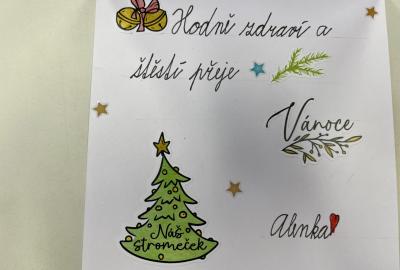 Hodně zdraví a
štěstí přeje
Vánoce
Náš
stromeček
Alenka